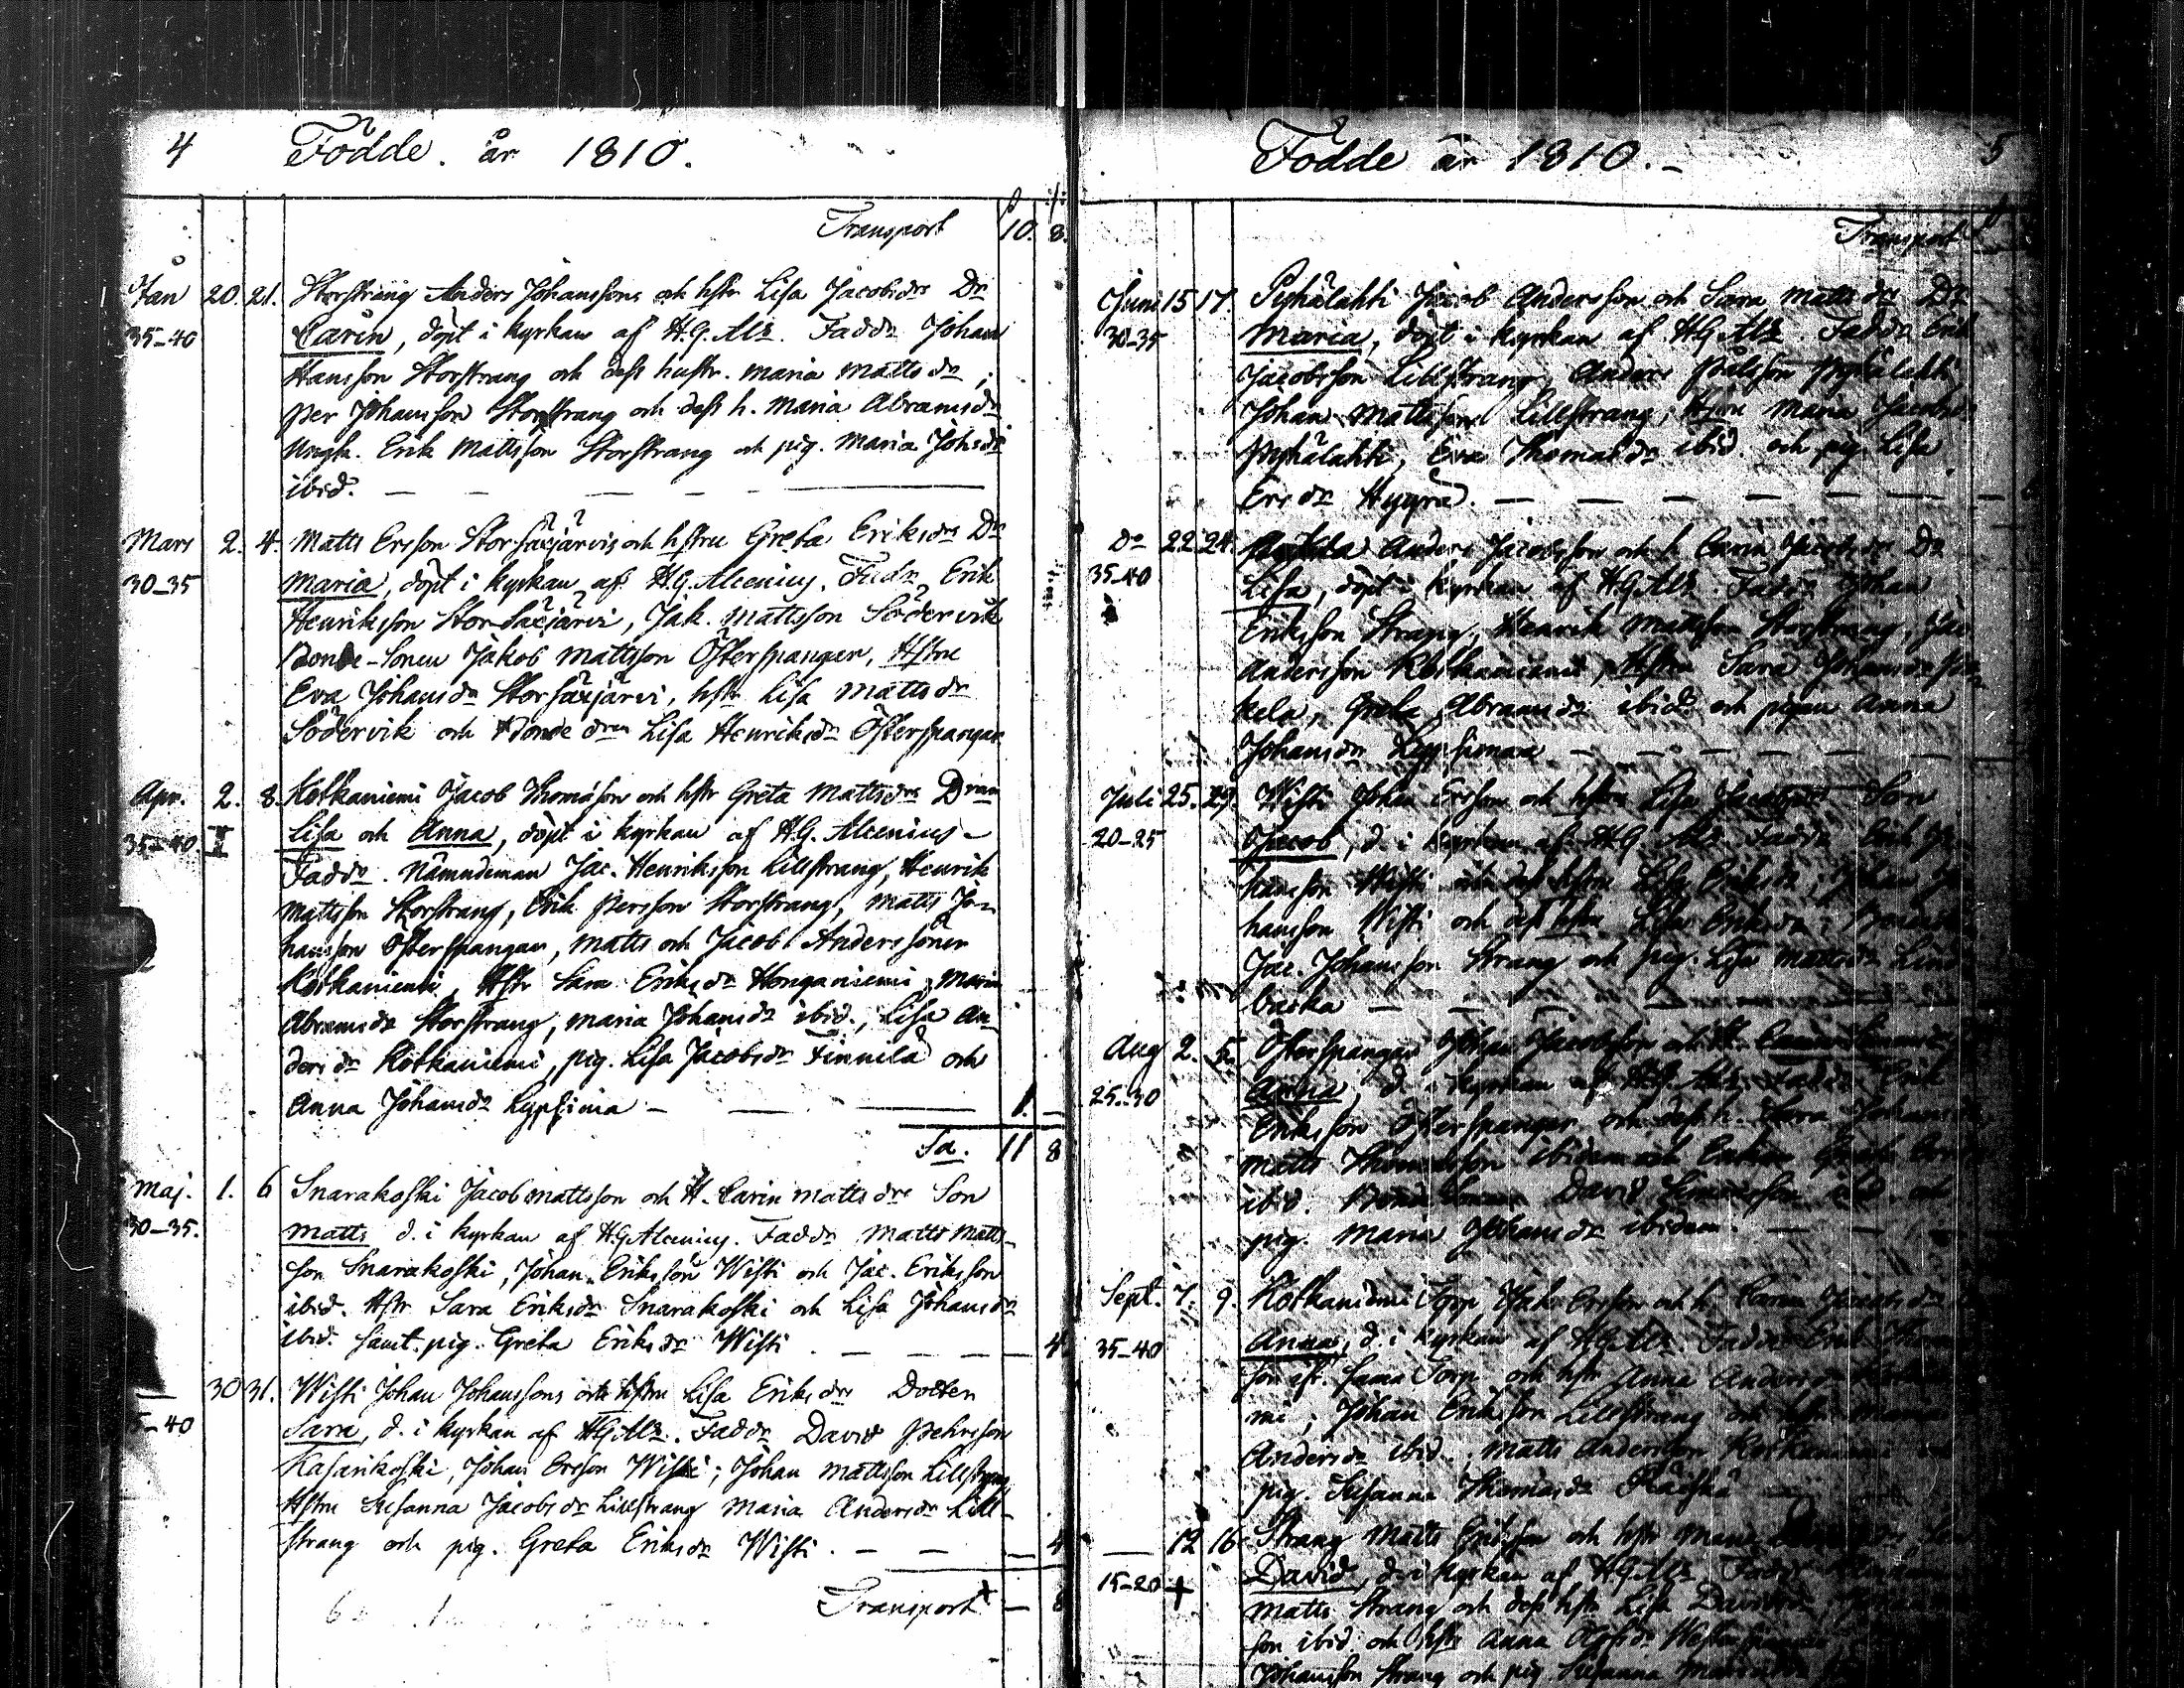 4 Födde. år 1810.
Transport 10. 8.
Jan 20. 21. Storstrang Anders Johanssons och hstr Lisa Jacobsdrs Dr
35-40 Carin, döpt i kyrkan af H.G. Alc. Faddr Johan
Hansson Storstrang och dess hustr. Maria Mattsdr;
Per Johansson Storstrang och dess h. Maria Abramsdr
Ungk. Erik Mattsson Storstrang och pig. Maria Johsdr
ibid.
Mars 2. 4. Matts Ersson Storsäxjärvis och hstru Greta Eriksdrs Dr
30-35 Maria, döpt i kyrkan af H.G. Alcenius. Faddr Erik
Henriksson Storsäxjärvi, Jak. Mattsson Södervik
Bonde-Sonen Jakob Mattsson Österspangar, Hstru
Eva Johansdr Storsäxjärvi, hstr Lisa Mattsdr
Södervik och Bonde drn Lisa Henriksdr Österspangar
Apr. 2. 8. Kotkaniemi Jacob Thomasson och hstr Greta Mattsdrs Drrar
35-40. II Lisa och Anna, döpt i kyrkan af H.G. Alcenius-
Faddr. Nämndeman Jac. Henriksson Lillstrang, Henrik
Mattsson Storstrang, Erik Persson Storstrang, Matts Jo-
hansson Österspangar, Matts och Jacob Anderssöner
Kotkaniemi, Hstr Sara Eriksdr Honganiemi, Maria
Abramsdr Storstrang, Maria Johansdr ibid., Lisa An-
dersdr Kotkaniemi, pig. Lisa Jacobsdr Finnilä och
Anna Johansdr Lypsima - 1. -
Sa. 11 8
Maj. 1. 6 Snarakoski Jacob Mattsson och H. Carin Mattsdrs Son
30-35. Matts d. i kyrkan af H.G. Alcenius. Faddr Matts Matts-
son Snarakoski, Johan Eriksson Wisti och Jac. Eriksson
ibid. Hstr Sara Eriksdr Snarakoski och Lisa Johansdr
ibid. samt. pig. Greta Eriksdr Wisti - 4
- 30 31. Wisti Johan Johanssons och hstru Lisa Eriksdrs Dotter
5-40 Sara, d. i kyrkan af HGAlc. Faddr David Pehrsson
Kasarikoski, Johan Ersson Wisti; Johan Mattsson Lillstrang
Hstru Susanna Jacobsdr Lillstrang Maria Andersdr Lill-
strang och pig. Greta Eriksdr Wisti. - 4
Transport - 8
Födde år 1810.- 5
Transport
Juni 15 17. Pyhälahti Jacob Andersson och Sara Mattsdrs Dr
30-35 Maria, döpt i kyrkan af HGAlc. Faddr Erik
Jacobsson Lillstrang, Anders Pålsson Pyhälahti
Johan Mattsson Lillstrang, Hstru Maria Jacobs
Pyhälahti, Eva Thomasdr ibid. och pig Lisa
Ersdr Hyyrä.
Do 22 24. Anders Jacobsson och h. Carin Dr
35-40 Lisa, döpt i kyrkan af HGAlc. Faddr Johan
Eriksson Strang, Henrik Mattsson Storstrang, Jac
Andersson Kotkaniemi, Hstru Sara Johansdr
kela, Greta Abramsdr ibid. och pigan Anna
Johansdr Lypsimara
Juli 25. 29. Wisti Johan Ersson och hstru Lisa Son
20-25 Jacob, d. i kyrkan af HG Alc Faddr Erik Jo-
hansson Wisti och dess hstru Lisa Eriksdr; Johan Jo-
hansson Wisti och dess hstru Lisa Eriksdr;
Jac. Johansson Strang och pig. Lisa Mattsdr Lind
backa
Aug 2. 5. Österspangar Johan Jacobsson och H. Carin
25-30 Anna, d. i kyrkan af HG. Alc. Faddr Erik
Eriksson Österspangar och dess h. Sara Johansdr
Matts Thomasson ibidem och Enkan Greta
ibid. David Simonsson ibid. och
pig. Maria Johansdr ibidem.
Sept. 7. 9. Kotkaniemi Torp Jak. Ersson och h. Carin Jacobsdr
35-40 Anna, d. i kyrkan af HGAlc. Faddr Erik
son fr. sama Torp och hstr Anna Andersdr
mi; Johan Eriksson Lillstrang och hstr Maria
Andersdr ibid., Matts Andersson Kotkaniemi
pig. Susanna Thomasdr Räiskä
- 12 16. Strang Matts Eriksson och hstr Maria
15-20 + David, d. i kyrkan af HGAlc. Faddr
Matts Strang och dess hstr Lisa Davidsdr
son ibid. och hstr Anna
Johansson Strang och pig. Susanna